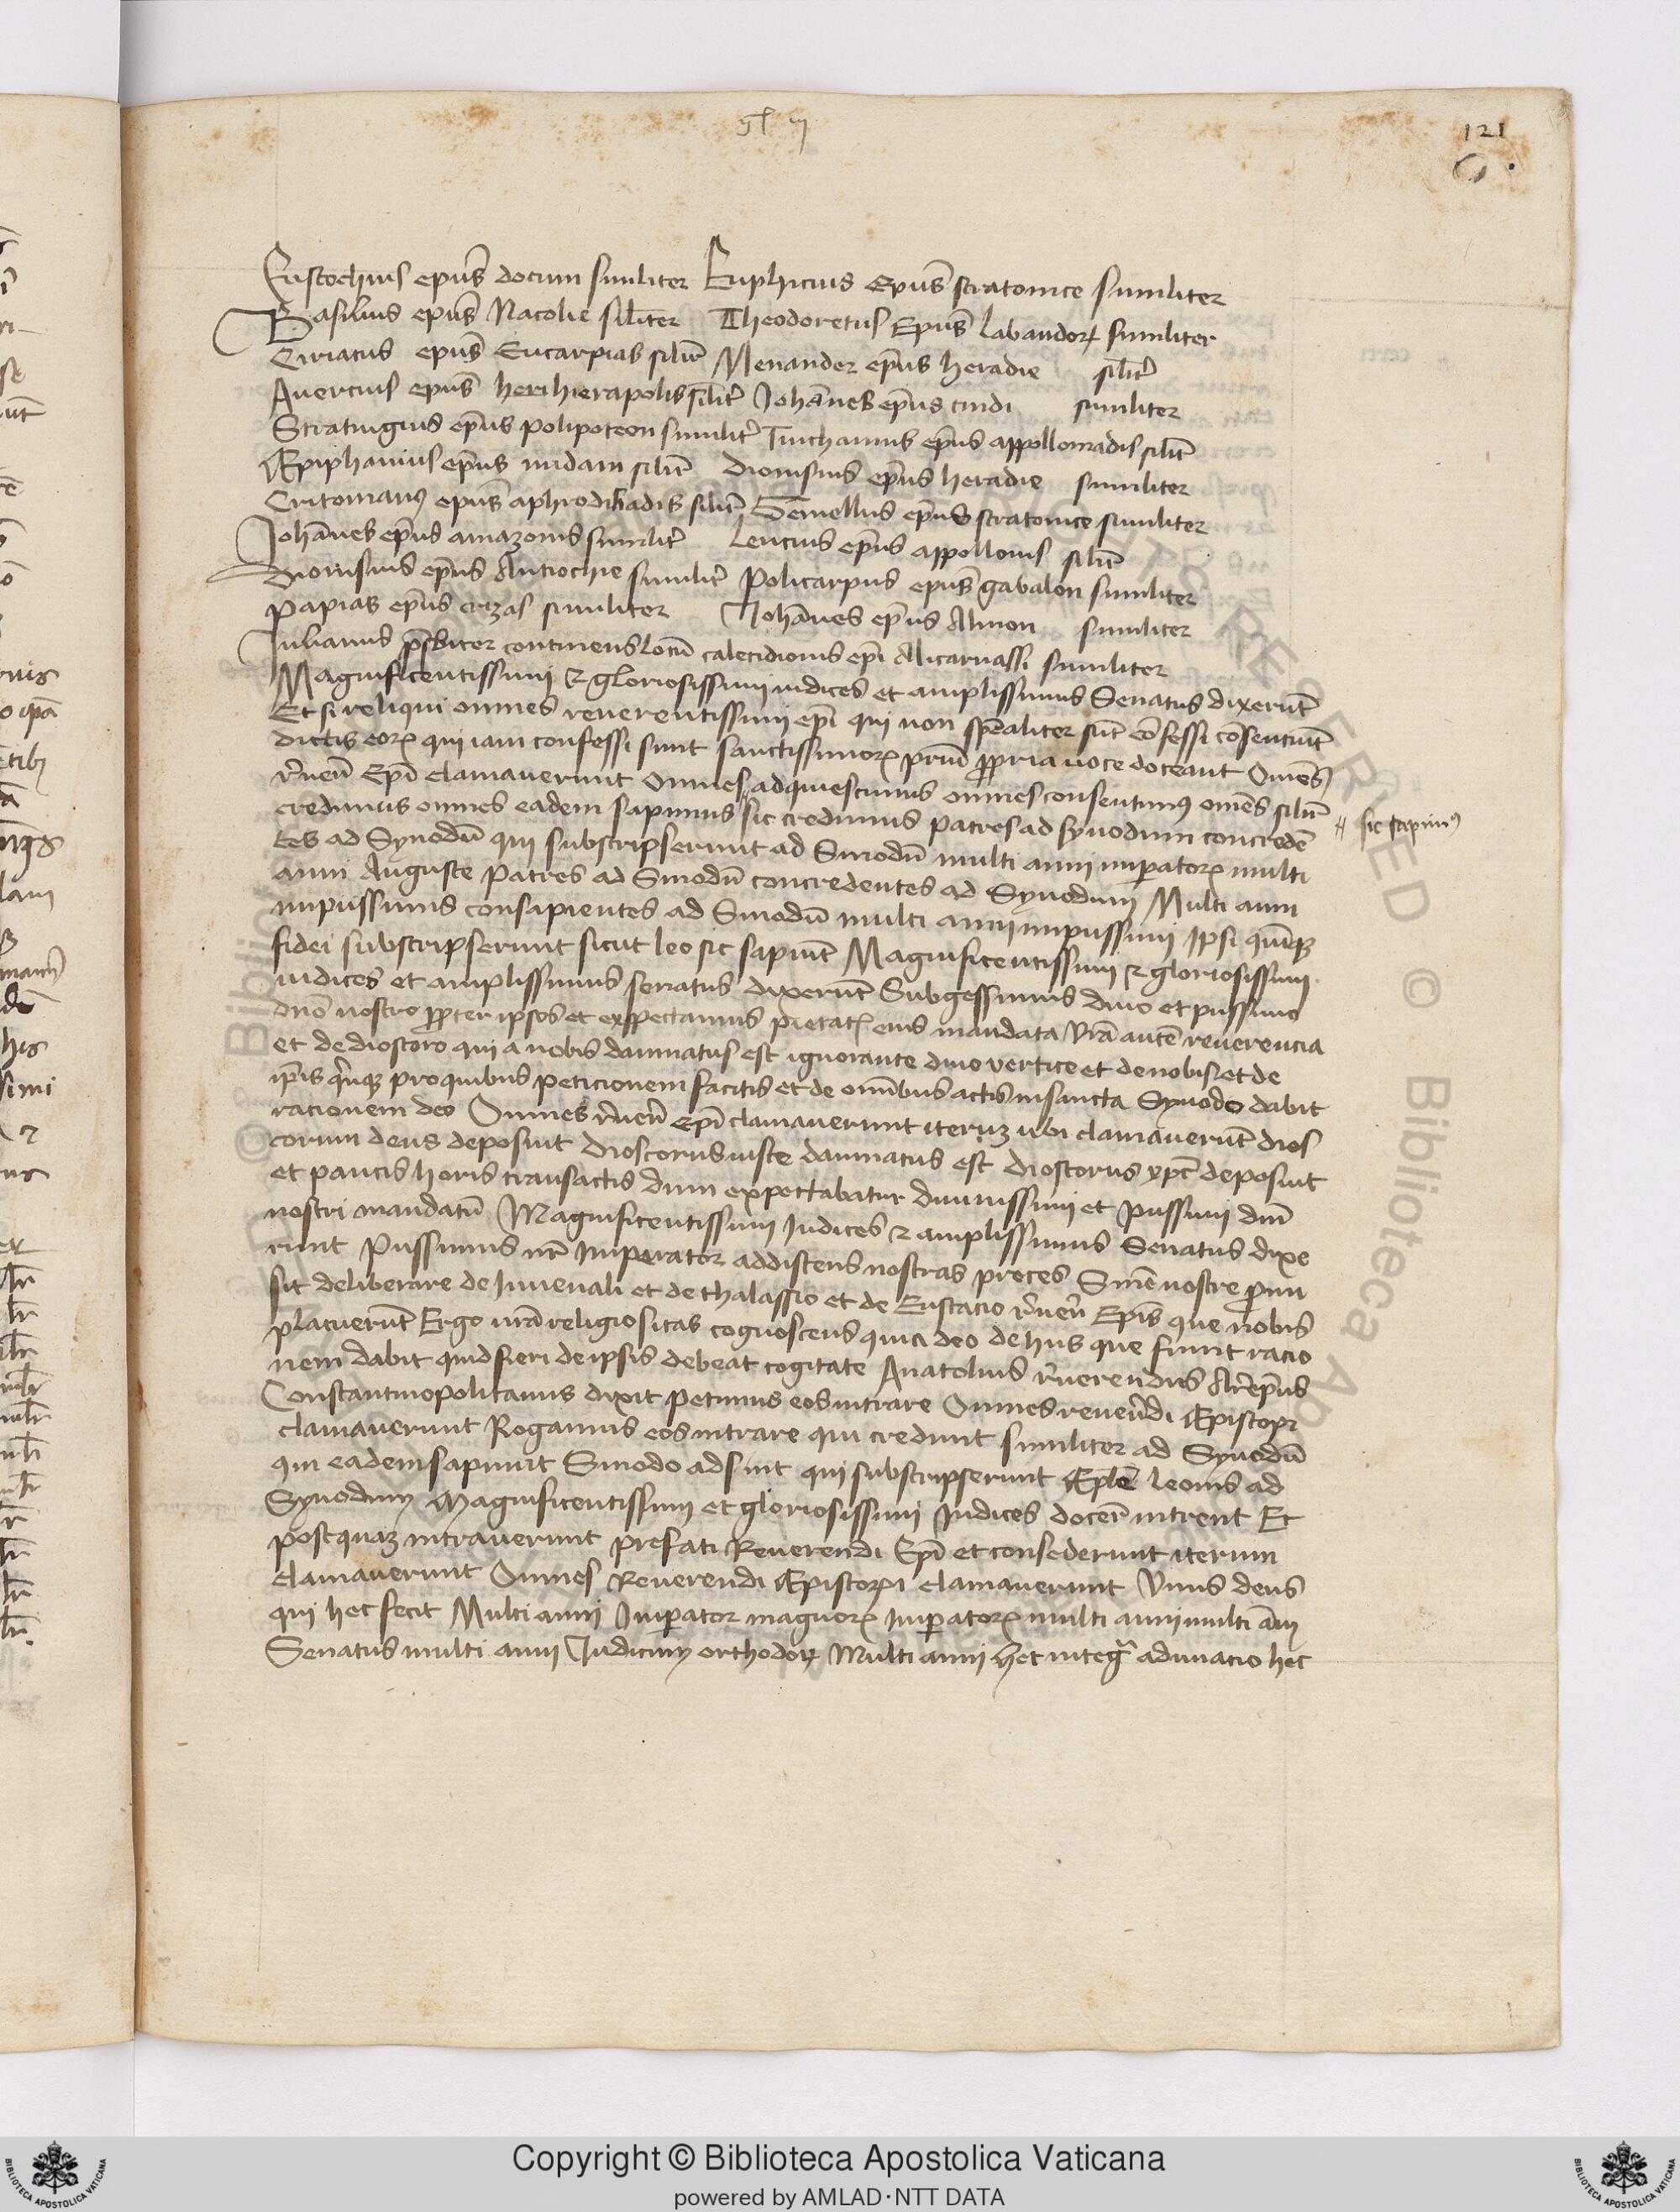 121
Eustochius epūs docim similiter Euphicius Epūs stratonice similiter
Basilius epūs Nacolie siliter Theodoretus Epūs labandoꝝ similiter
Ciriatus epūs Eucarpias silīr Menander epūs heradie silīr
Avercius epūs heri hierapolis silīr Johānes epūs cindi similiter
Stratingius epūs polipoteon similīr epūs appolloniadis silīr
Epiphanius epūs midam silīr Dionisius epūs heradie similiter
Critonianꝰ epūs aphrodisiadis silīr Gemellus epūs stratonice similiter
Johānes epūs amazonis similīr Leucius epūs appollonis silīr
Dionisius epūs Antiochie similīr Policarpus epūs gabalon similiter
Papias epūs erizas similiter Johānes epūs Alinon similiter
Julianus pr̄sbiter continens locū calecidionis epī Alicarnassi similiter
Magnificentissimi ⁊ gloriosissimi iudices et amplissimus Senatus dixerūt
Et si reliqui omnes reuerentissimi epī qui non spēaliter sūt cōfessi cōsentiūt
dictis eoꝝ qui iam confessi sunt sanctissimoꝝ prūm ꝓpria uoce doceant Omēs
r̄ueñ Epī clamauerunt omnes adquiescimus omnes consentimꝰ omēs silīr
credimus omnes eadem sapimus sic credimus patres ad synodum concredē
sic sapimꝰ
tes ad Synodū qui subscripserunt ad Sinodū multi anni imperatoꝝ multi
anni Auguste patres ad Sinodū concredentes ad Synodum Multi anni
impiissimis consapientes ad Sinodū multi anni impiissimi Ipsi quīqꝫ
fidei subscripserunt sicut leo sic sapiūt Magnificentissimi ⁊ gloriosissimi
iudices et amplissimus senatus dixerūt Subgessimus diuo et piissimo
dnō nostro ꝓpter ipsos et exspectamus pietatꝭ eius mandata Vrā autē reuerencia
et de dioscoro qui a nobis damnatus est ignorante diuo vertice et de nobis et de
ip̄is qr̄nqꝫ pro quibus peticionem facitis et de omībus actis in sancta Synodo dabit
racionem deo Omnes r̄ueñ Epī clamauerunt iteruꝫ ubi clamauerūt dios
corum deus deposuit Dioscorus iuste damnatus est Dioscorus xp̄c deposuit
et paucis horis transactis dum expectabatur diuinissimi et piissimi dñi
nostri mandatū Magnificentissimi Iudices ⁊ amplissimus Senatus dixe
runt Piissimus nr̄ Imperator addiscens nostras preces Sinē nostre ꝑmi
sit deliberare de Iuuenali et de thalassio et de Eustacio r̄ueñ Epīs que nobis
placuerūt Ergo urā religiositas cognoscens quia deo de hiis que fiunt racio
nem dabit quid fieri de ipsis debeat cogitate Anatolius r̄uerendus Ar̄epūs
Constantinopolitanus dixit petimus eos intrare Omnes reueñdi Episcopi
clamauerunt Rogamus eos intrare qui credunt similiter ad Synodū
qui eadem sapiunt Sinodo adsint qui subscripserunt Eplē leonis ad
Synodum Magnificentissimi et gloriosissimi Iudices docerē intrent Et
postquaꝫ intrauerunt prefati Reuerendi Epī et consederunt iterum
clamauerunt Omnes Reuerendi Episcopi clamauerunt Vnus deus
qui hec fecit Multi anni Imperator magnoꝝ Imperatoꝝ multi anni multi āni
Senatus multi anni Iudicum orthodoꝝ Multi anni hec integra adunacio hec
Copyright © Biblioteca Apostolica Vaticana
powered by AMLAD·NTT DATA